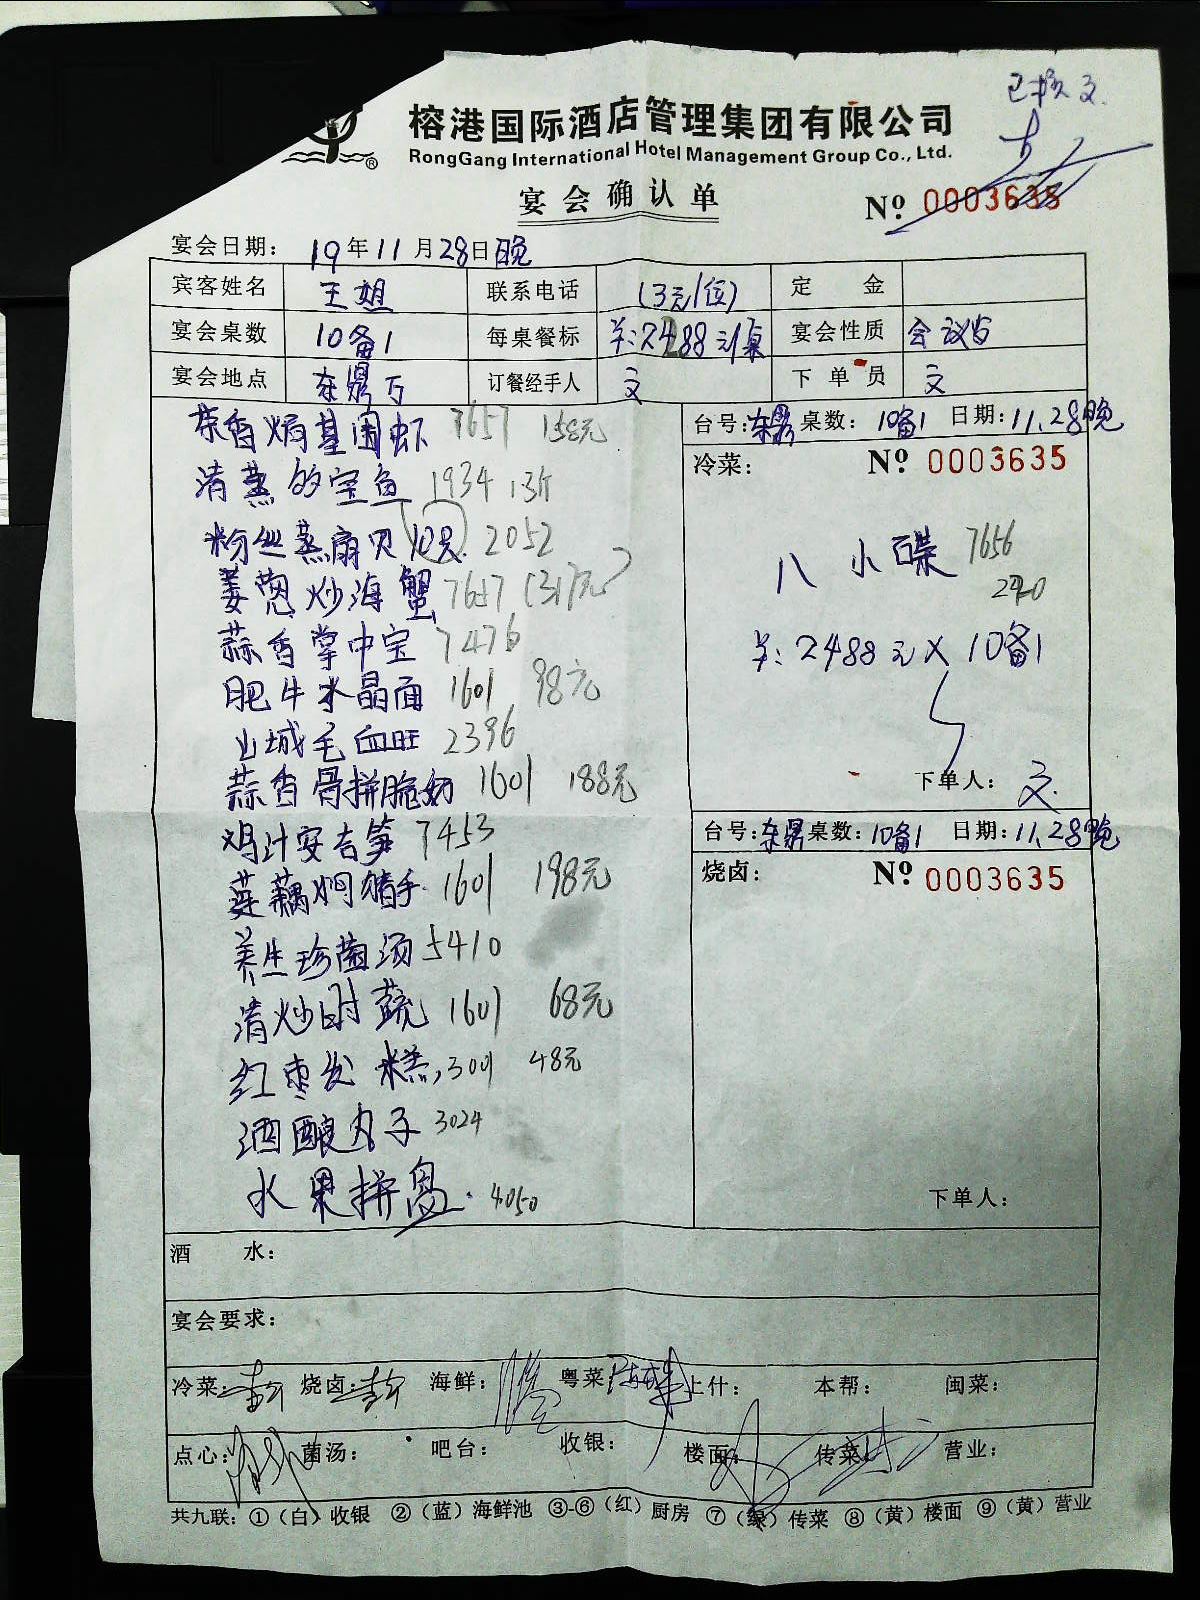 榕港国际酒店管理集团有限公司
RongGang International Hotel Management Group Co., Ltd.
宴会确认单
№ 0003635
宴会日期: 19年11月28日晚
宾客姓名 王姐 联系电话 (3元/位) 定金
宴会桌数 10备1 每桌餐标 ¥:2488元/桌 宴会性质
宴会地点 东鼎 订餐经手人 文 下单员 文
茶香焗基围虾 7657 158元
清蒸多宝鱼 1934 1.3斤
粉丝蒸扇贝 10只 2052
姜葱炒海蟹 7657
蒜香掌中宝 7476
肥牛水晶面 1601 98元
山城毛血旺 2396
蒜香骨拼脆奶 1601 188元
鸡汁安吉笋 7453
莲藕焖猪手 1601 198元
养生珍菌汤 5410
清炒时蔬 1601 68元
红枣发糕 3001 48元
酒酿丸子 3024
水果拼盘 4050
台号: 东鼎 桌数: 10备1 日期: 11.28晚
冷菜: № 0003635
八小碟 7656
¥: 2488元 X 10备1
下单人: 文
台号: 东鼎 桌数: 10备1 日期: 11.28晚
烧卤: № 0003635
下单人:
酒水:
宴会要求:
冷菜: 烧卤: 海鲜: 粤菜: 上什: 本帮: 闽菜:
点心: 菌汤: 吧台: 收银: 楼面: 传菜: 营业:
共九联: ①(白)收银 ②(蓝)海鲜池 ③-⑥(红)厨房 ⑦(绿)传菜 ⑧(黄)楼面 ⑨(黄)营业